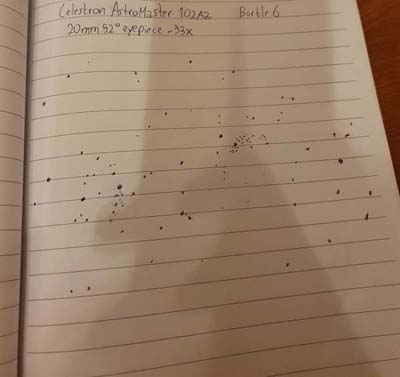 Celestron AstroMaster 102AZ Bortle 6
20mm 52° eyepiece ~33x